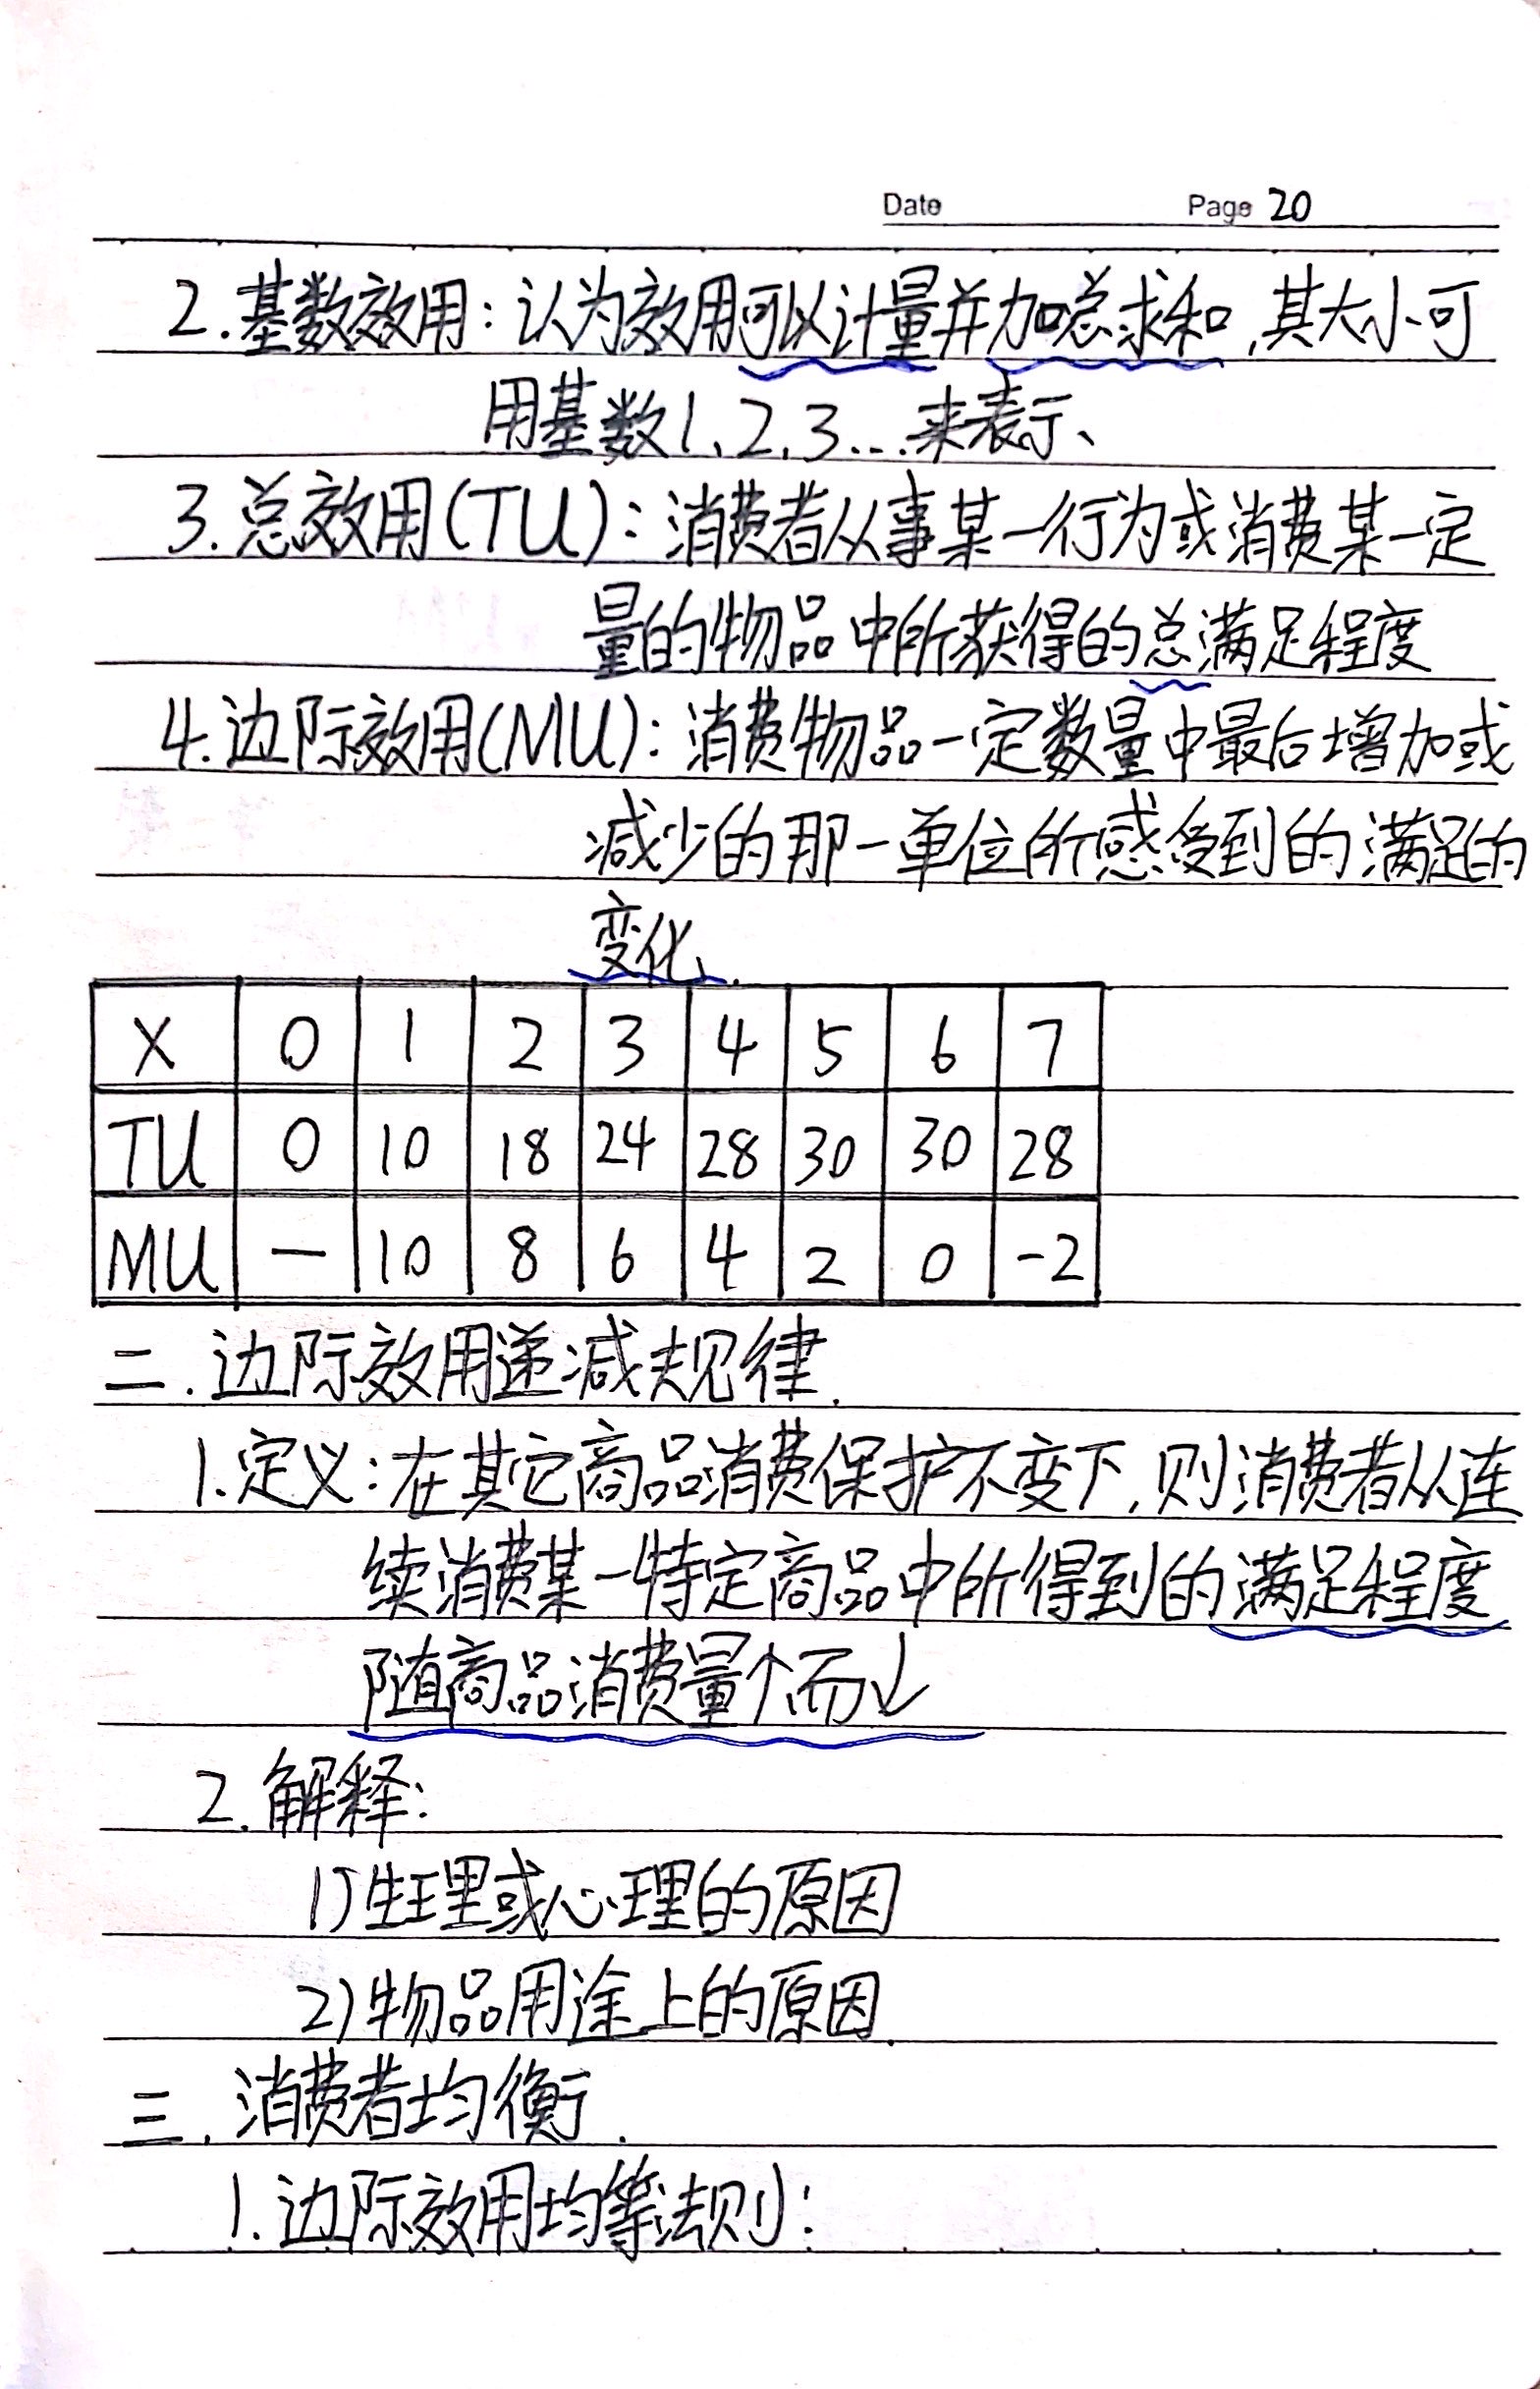 Date Page 20
2.基数效用：认为效用可以计量并加总求和，其大小可
用基数1、2、3...来表示、
3.总效用(TU)：消费者从事某一行为或消费某一定
量的物品中所获得的总满足程度
4.边际效用(MU)：消费物品一定数量中最后增加或
减少的那一单位所感受到的满足的
变化.
X 0 1 2 3 4 5 6 7
TU 0 10 18 24 28 30 30 28
MU — 10 8 6 4 2 0 -2
二.边际效用递减规律.
1.定义：在其它商品消费保护不变下,则消费者从连
续消费某一特定商品中所得到的满足程度
随商品消费量↑而↓
2.解释：
1)生理或心理的原因
2)物品用途上的原因.
三.消费者均衡.
1.边际效用均等法则：